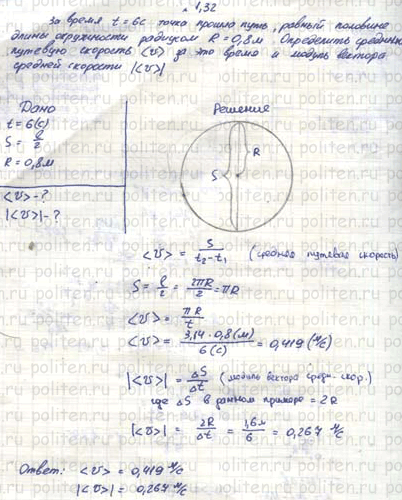 1,32
За время t = 6с точка прошла путь, равный половине
длины окружности радиусом R = 0,8м. Определить среднюю
путевую скорость <v> за это время и модуль вектора
средней скорости |<v>|
Дано
t = 6(с)
S = l/2
R = 0,8м
<v> - ?
|<v>| - ?
Решение
S
R
<v> = S/(t₂-t₁) (средняя путевая скорость)
S = l/2 = 2πR/2 = πR
<v> = πR/t
<v> = 3,14·0,8(м)/6(с) = 0,419 (м/с)
|<v>| = ΔS/Δt (модуль вектора средн. скор.)
где ΔS в данном примере = 2R
|<v>| = 2R/Δt = 1,6м/6 = 0,267 м/с
Ответ: <v> = 0,419 м/с
|<v>| = 0,267 м/с
www.politen.ru